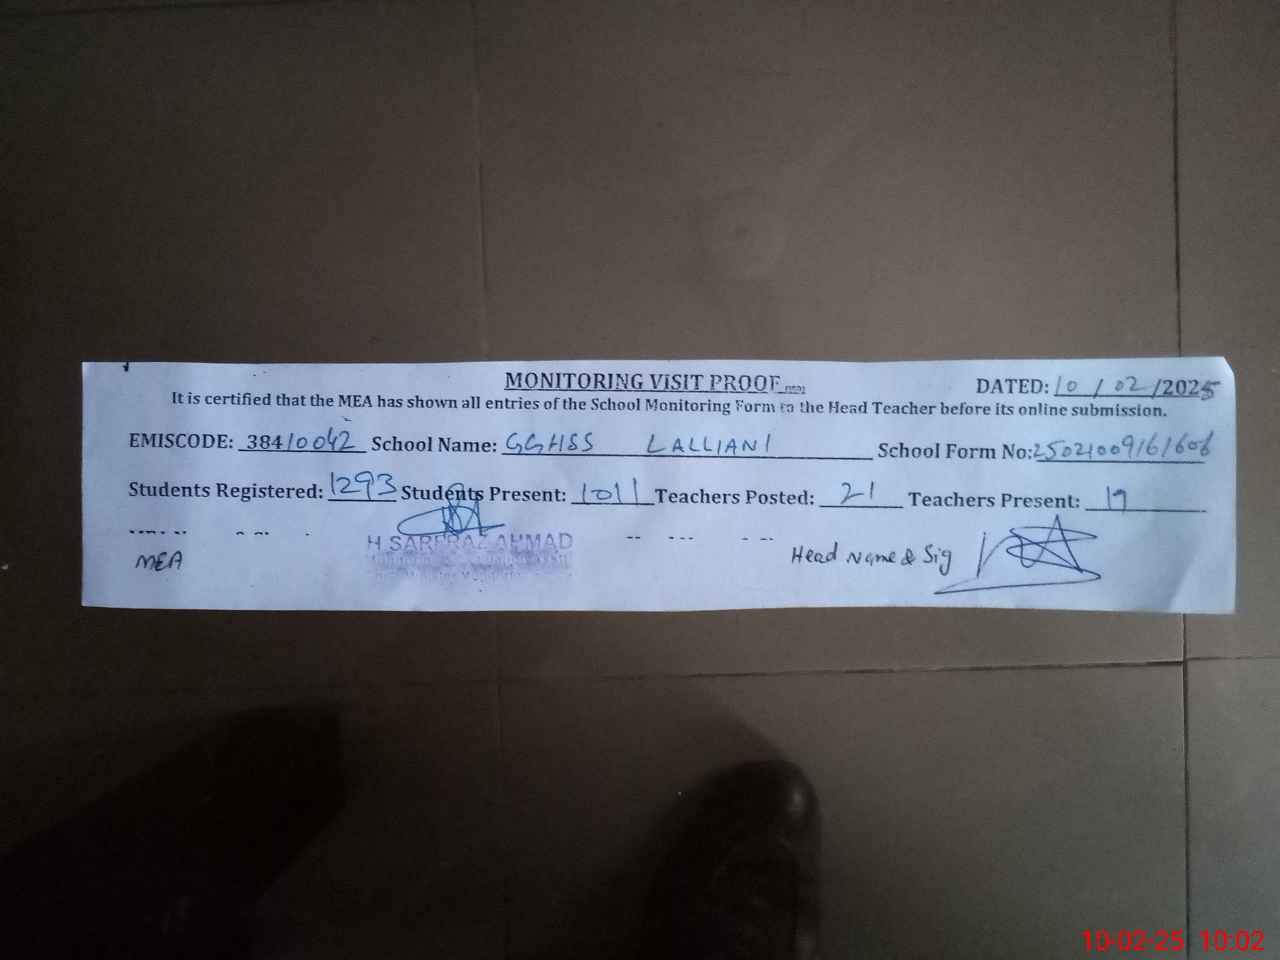 MONITORING VISIT PROOF
DATED: 10/02/2025
It is certified that the MEA has shown all entries of the School Monitoring Form to the Head Teacher before its online submission.
EMISCODE: 38410042 School Name: GGHSS LALLIANI School Form No:
Students Registered: 1293 Students Present: 1011 Teachers Posted: 21 Teachers Present: 19
H SARFRAZ AHMAD
MEA
Head Name & Sig
10-02-25 10:02